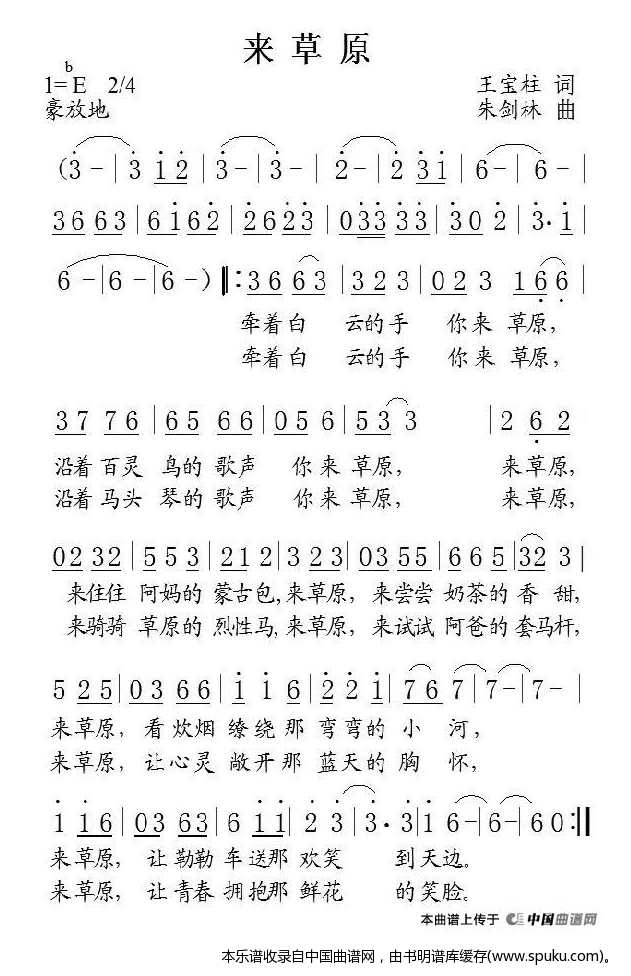 来草原
1=ᵇE 2/4
王宝柱 词
豪放地
朱剑秝 曲
(3 - | 3 1 2 | 3 - | 3 - | 2 - | 2 3 1 | 6 - | 6 - |
3 6 6 3 | 6 1 6 2 | 2 6 2 3 | 0 3 3 3 3 | 3 0 2 | 3. 1 |
6 - | 6 - | 6 - ) ‖: 3 6 6 3 | 3 2 3 | 0 2 3 1 6 6 |
牵着白 云的手 你来 草原,
牵着白 云的手 你来 草原,
3 7 7 6 | 6 5 6 6 | 0 5 6 | 5 3 3 | 2 6 2 |
沿着 百灵 鸟的 歌声 你来 草原, 来草原,
沿着 马头 琴的 歌声 你来 草原, 来草原,
0 2 3 2 | 5 5 3 | 2 1 2 | 3 2 3 | 0 3 5 5 | 6 6 5 | 3 2 3 |
来住住 阿妈的 蒙古包, 来草原, 来尝尝 奶茶的 香 甜,
来骑骑 草原的 烈性马, 来草原, 来试试 阿爸的 套马杆,
5 2 5 | 0 3 6 6 | 1 1 6 | 2 2 1 | 7 6 7 | 7 - | 7 - |
来草原, 看炊烟 缭绕那 弯弯的 小 河,
来草原, 让心灵 敞开那 蓝天的 胸 怀,
1 1 6 | 0 3 6 3 | 6 1 1 | 2 3 | 3. 3 | 1 6 - | 6 - | 6 0 :‖
来草原, 让勒勒 车送那 欢笑 到天边。
来草原, 让青春 拥抱那 鲜花 的笑脸。
本曲谱上传于 中国曲谱网
本乐谱收录自中国曲谱网，由书明谱库缓存(www.spuku.com)。